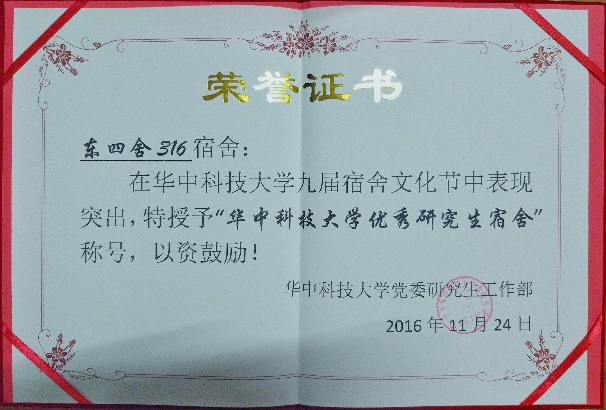 荣誉证书
东四舍316宿舍：
在华中科技大学九届宿舍文化节中表现
突出，特授予“华中科技大学优秀研究生宿舍”
称号，以资鼓励！
华中科技大学党委研究生工作部
2016年11月24日